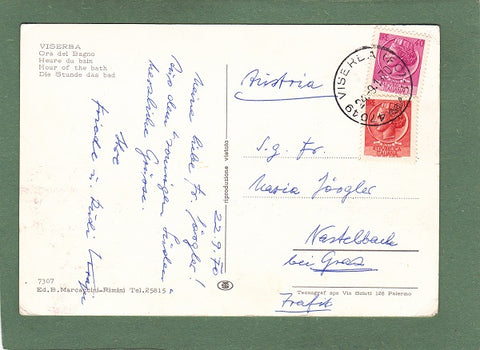 VISERBA
Ora del Bagno
Heure du bain
Hour of the bath
Die Stunde das bad
22.9.70
Meine liebe Fr. Jörgler!
Aus dem sonnigen Süden
herzliche Grüsse.
Ihre
Friede u. Rudi
7307
Ed. B. Marcaccini-Rimini Tel. 25815
riproduzione vietata
Austria
S.g. Fr.
Maria Jörgler
Nestelbach
bei Graz
Trafik
Tecnograf spa Via Scluti 128 Palermo
47049 VISERBA